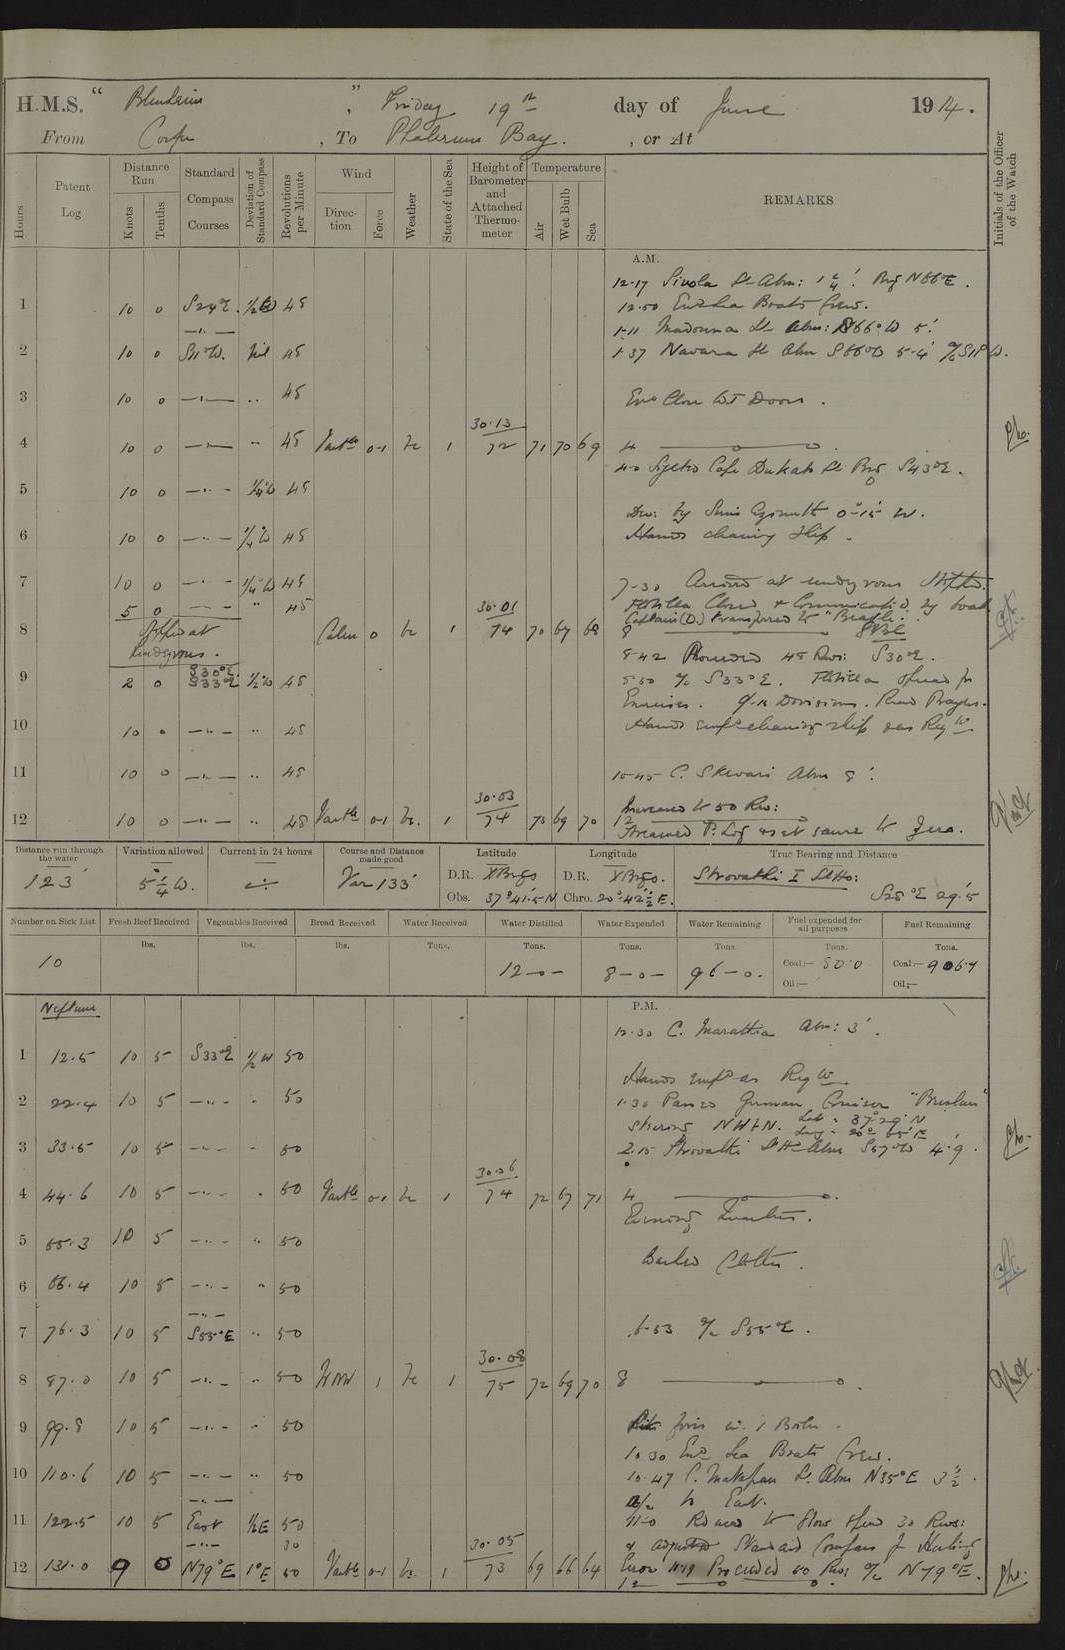 H.M.S. " Blenheim ", Friday 19th day of June 1914.
From Corfu, To Phalerum Bay. , or At
Hours
Patent Log
Distance Run
Knots
Tenths
Standard Compass Courses
Deviation of Standard Compass
Revolutions per Minute
Wind
Direction
Force
Weather
State of the Sea
Height of Barometer and Attached Thermometer
Temperature
Air
Wet Bulb
Sea
REMARKS
Initials of the Officer of the Watch
A.M.
12.17 Sivola Lt Abm: Brg N66°E.
1 10 0 S24°E. 1/2W 48
12.50 Boats Crew.
1.11 Madonna Lt Abm: 5'.
2 10 0 S11°W. Nil 48
1.37 Lt Abm 5.4' a/c S11°W.
3 10 0 48
Close WT Doors.
4 10 0 48 Varble 0-1 bc 1 30.13 72 71 70 69 4
4.0 Cape Dukato Lt Brg S43°E.
5 10 0 1/4°W 48
Dev: by Suns Azimuth 0°-15' W.
6 10 0 1/4°W 48
Hands cleaning Ship.
7 10 0 1/4°W 48
7.30 Arrived at rendezvous Stopped.
5 0 " 48
Flotilla Closed & Communicated by boat.
Stopped at rendezvous.
Captain (D) transferred to "Beagle".
8 Calm 0 bc 1 30.01 74 70 67 68 8
8.42 Proceeded 48 Revs: S30°E.
9 2 0 S30°E. S33°E 1/2°W 48
8.50 a/c S33°E. Flotilla spread for
Exercises. Divisions. Read Prayers.
10 10 0 48
Hands empd cleaning ship & as Reqte
11 10 0 48
10.45 C. Skinari Abm 8'.
Increased to 50 Rev:
12 10 0 48 Varble 0-1 bc. 1 30.03 74 73 69 70 12
Streamed P. Log & set same to Zero.
Distance run through the water
Variation allowed
Current in 24 hours
Course and Distance made good
Latitude
Longitude
True Bearing and Distance
123' 5 1/4° W. Var 133' D.R. X Brgs D.R. X Brgs. Strovathi I Lt Ho:
Obs. 37°41'.5 N Chro. 20°.42 1/2' E. S25°E 29'.5
Number on Sick List
Fresh Beef Received
Vegetables Received
Bread Received
Water Received
Water Distilled
Water Expended
Water Remaining
Fuel expended for all purposes
Fuel Remaining
lbs. lbs. lbs. Tons. Tons. Tons. Tons. Tons. Tons.
10 12-0- 8-0- 96-0. Coal:— 50.0 Coal:— 906.4
Oil:— Oil:—
Neptune
P.M.
12.30 C. Marathia Abm: 3'.
1 12.5 10 5 S33°E 1/2W 50
Hands empd as Reqte
2 22.4 10 5 50
1.30 Passed German Cruiser "Breslau"
steering NW+N. Lat = 37°29' N
3 33.5 10 5 50
2.15 Strovathi Lt Ho Abm S57°W 4'.9.
4 44.6 10 5 50 Varble 0-1 bc 1 30.06 74 72 67 71 4
Evening Quarters.
5 55.3 10 5 50
Washed Clothes.
6 66.4 10 5 50
7 76.3 10 5 S55°E 50
6.53 a/c S55°E.
8 87.0 10 5 50 WNW 1 bc 1 30.08 75 72 69 70 8
9 99.8 10 5 50
fires in 1 Boiler.
10.30 Sea Boats Crew.
10 110.6 10 5 50
10.47 C. Matapan Lt. Abm N35°E 3 1/2'.
a/c to East.
11 122.5 10 5 East 1/2E 50
11.0 Reduced to Slow speed 30 Revs:
30
& adjusted Standard Compass for Heeling
12 131.0 9 0 N79°E 1°E 50 Varble 0-1 bc. 1 30.05 73 69 66 64
Error 11.19 Proceeded 50 Revs a/c N79°E.
12